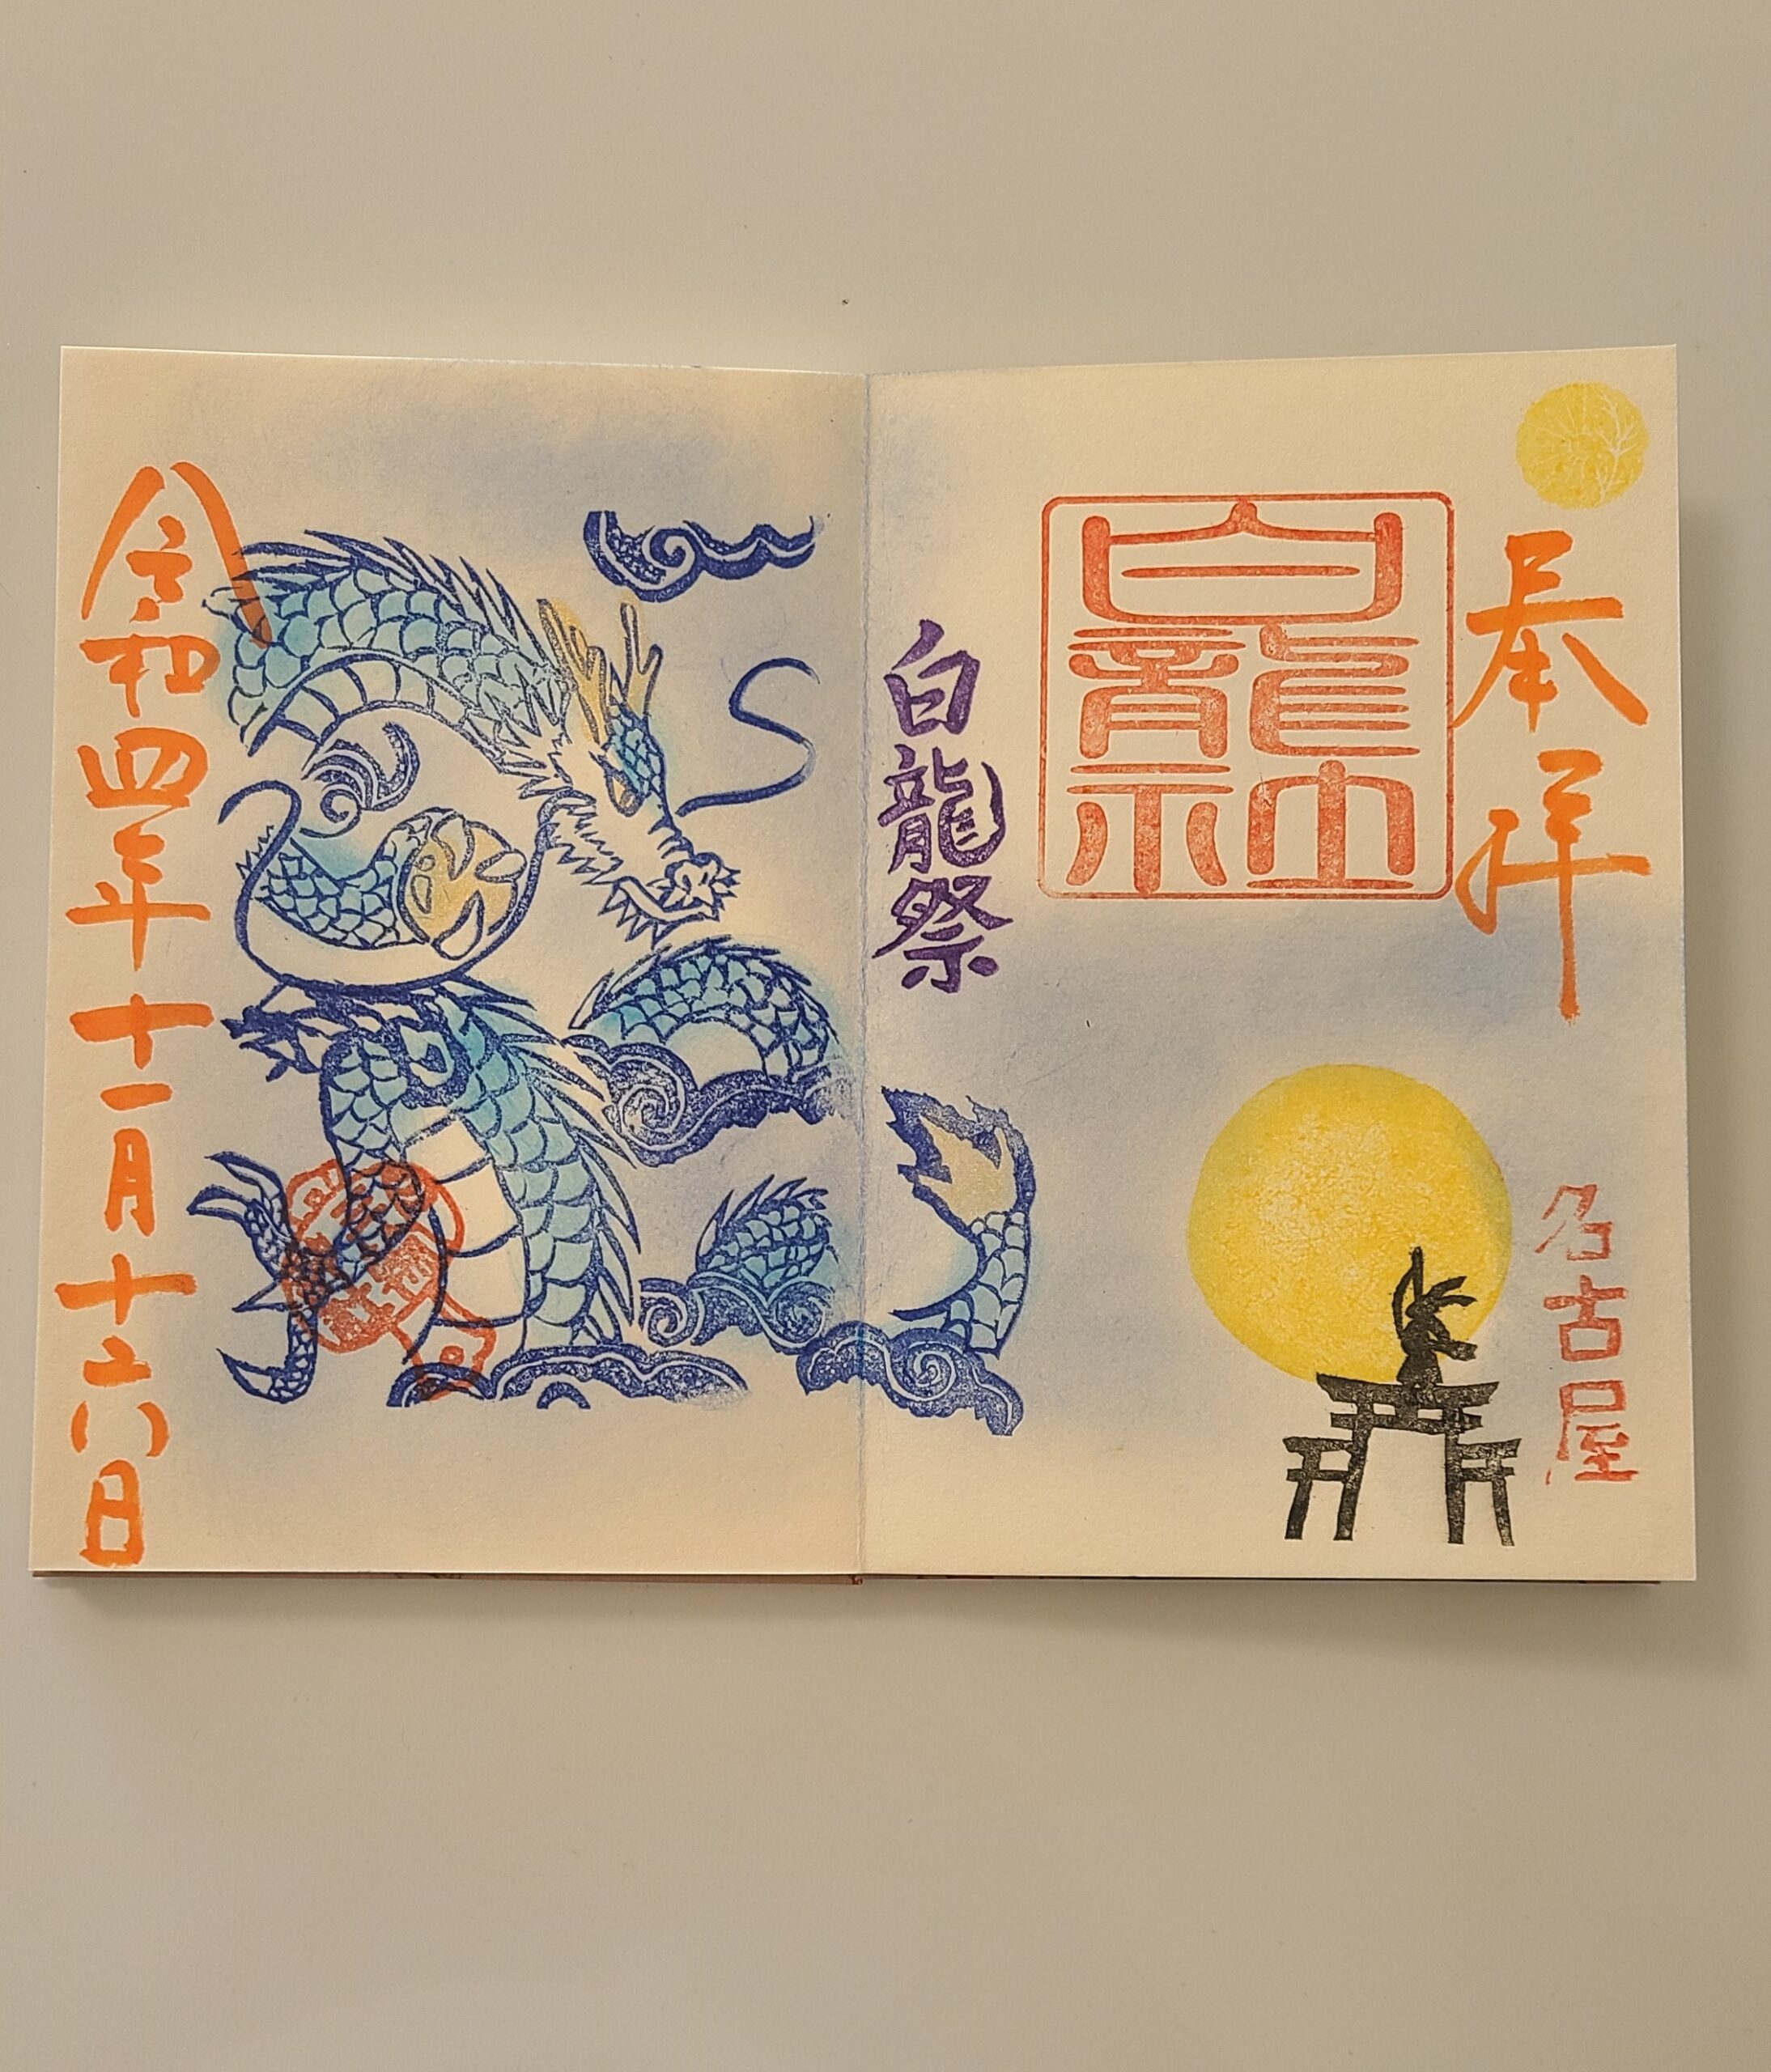 奉拝
名古屋
白龍
白龍祭
令和四年十一月十六日